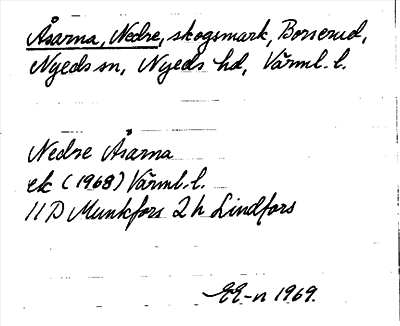 Åsarna, Nedre, skogsmark, Borserud,
Nyeds sn, Nyeds hd, Värml. l.
Nedre Åsarna
ek (1968) Värml. l.
11D Munkfors 2h Lindfors
EE-n 1969.